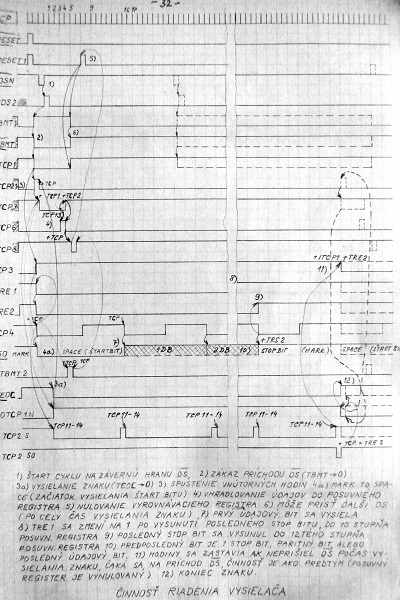 - 32 -
1 2 3 4 5 9 16 17
TCP
RESET
RESET 1
DSN 1)
DS 2
TBMT 1 2) 6)
TBMT
TCP 1
TCP2 3) TCP
TCP1 + TCP2
TCP13
4)
+TCP
5)
+(TCP1 + TRE2)
TCP 3 11)
TRE 1 8)
TRE 2 9)
TCP TCP
TCP 4
7) +TRS2
SO MARK 4a) SPACE (ŠTARTBIT) 1DB 2DB 10) STOPBIT (MARK) SPACE (START
TCP TCP
TBMT 2
3a) 12)
TEOC
TCP1N
TCP11-14 TCP11-14 TCP11-14 TCP11-14
TCP2 S
TCP + TRE2
TCP2 SO
1) ŠTART CYKLU NA ZÁVERNÚ HRANU DS, 2) ZÁKAZ PRÍCHODU DS (TBMT→0)
3a) VYSIELANIE ZNAKU (TEOC→0) 3) SPUSTENIE VNÚTORNÝCH HODÍN 4a) MARK TO SPA-
CE (ZAČIATOK VYSIELANIA ŠTART BITU) 4) VHRADLOVANIE ÚDAJOV DO POSUVNÉHO
REGISTRA 5) NULOVANIE VYROVNÁVACIEHO REGISTRA 6) MÔŽE PRÍSŤ ĎALŠÍ DS
(PO CELÝ ČAS VYSIELANIA ZNAKU) 7) PRVÝ ÚDAJOVÝ BIT SA VYSIELA
8) TRE 1 SA ZMENÍ NA 1 PO VYSUNUTÍ POSLEDNÉHO STOP BITU, DO 10 STUPŇA
POSUVN. REGISTRA 9) POSLEDNÝ STOP BIT SA VYSUNUL DO 12TEHO STUPŇA
POSUVN. REGISTRA 10) PREDPOSLEDNÝ BIT JE 1 STOP BIT, PARITNÝ BIT, ALEBO
POSLEDNÝ ÚDAJOVÝ BIT, 11) HODINY SA ZASTAVIA AK NEPRIŠIEL DS POČAS VY-
SIELANIA ZNAKU, ČAKÁ SA NA PRÍCHOD DS, ČINNOSŤ JE AKO PREDTÝM (POSUVNÝ
REGISTER JE VYNULOVANÝ) 12) KONIEC ZNAKU
ČINNOSŤ RIADENIA VYSIELAČA